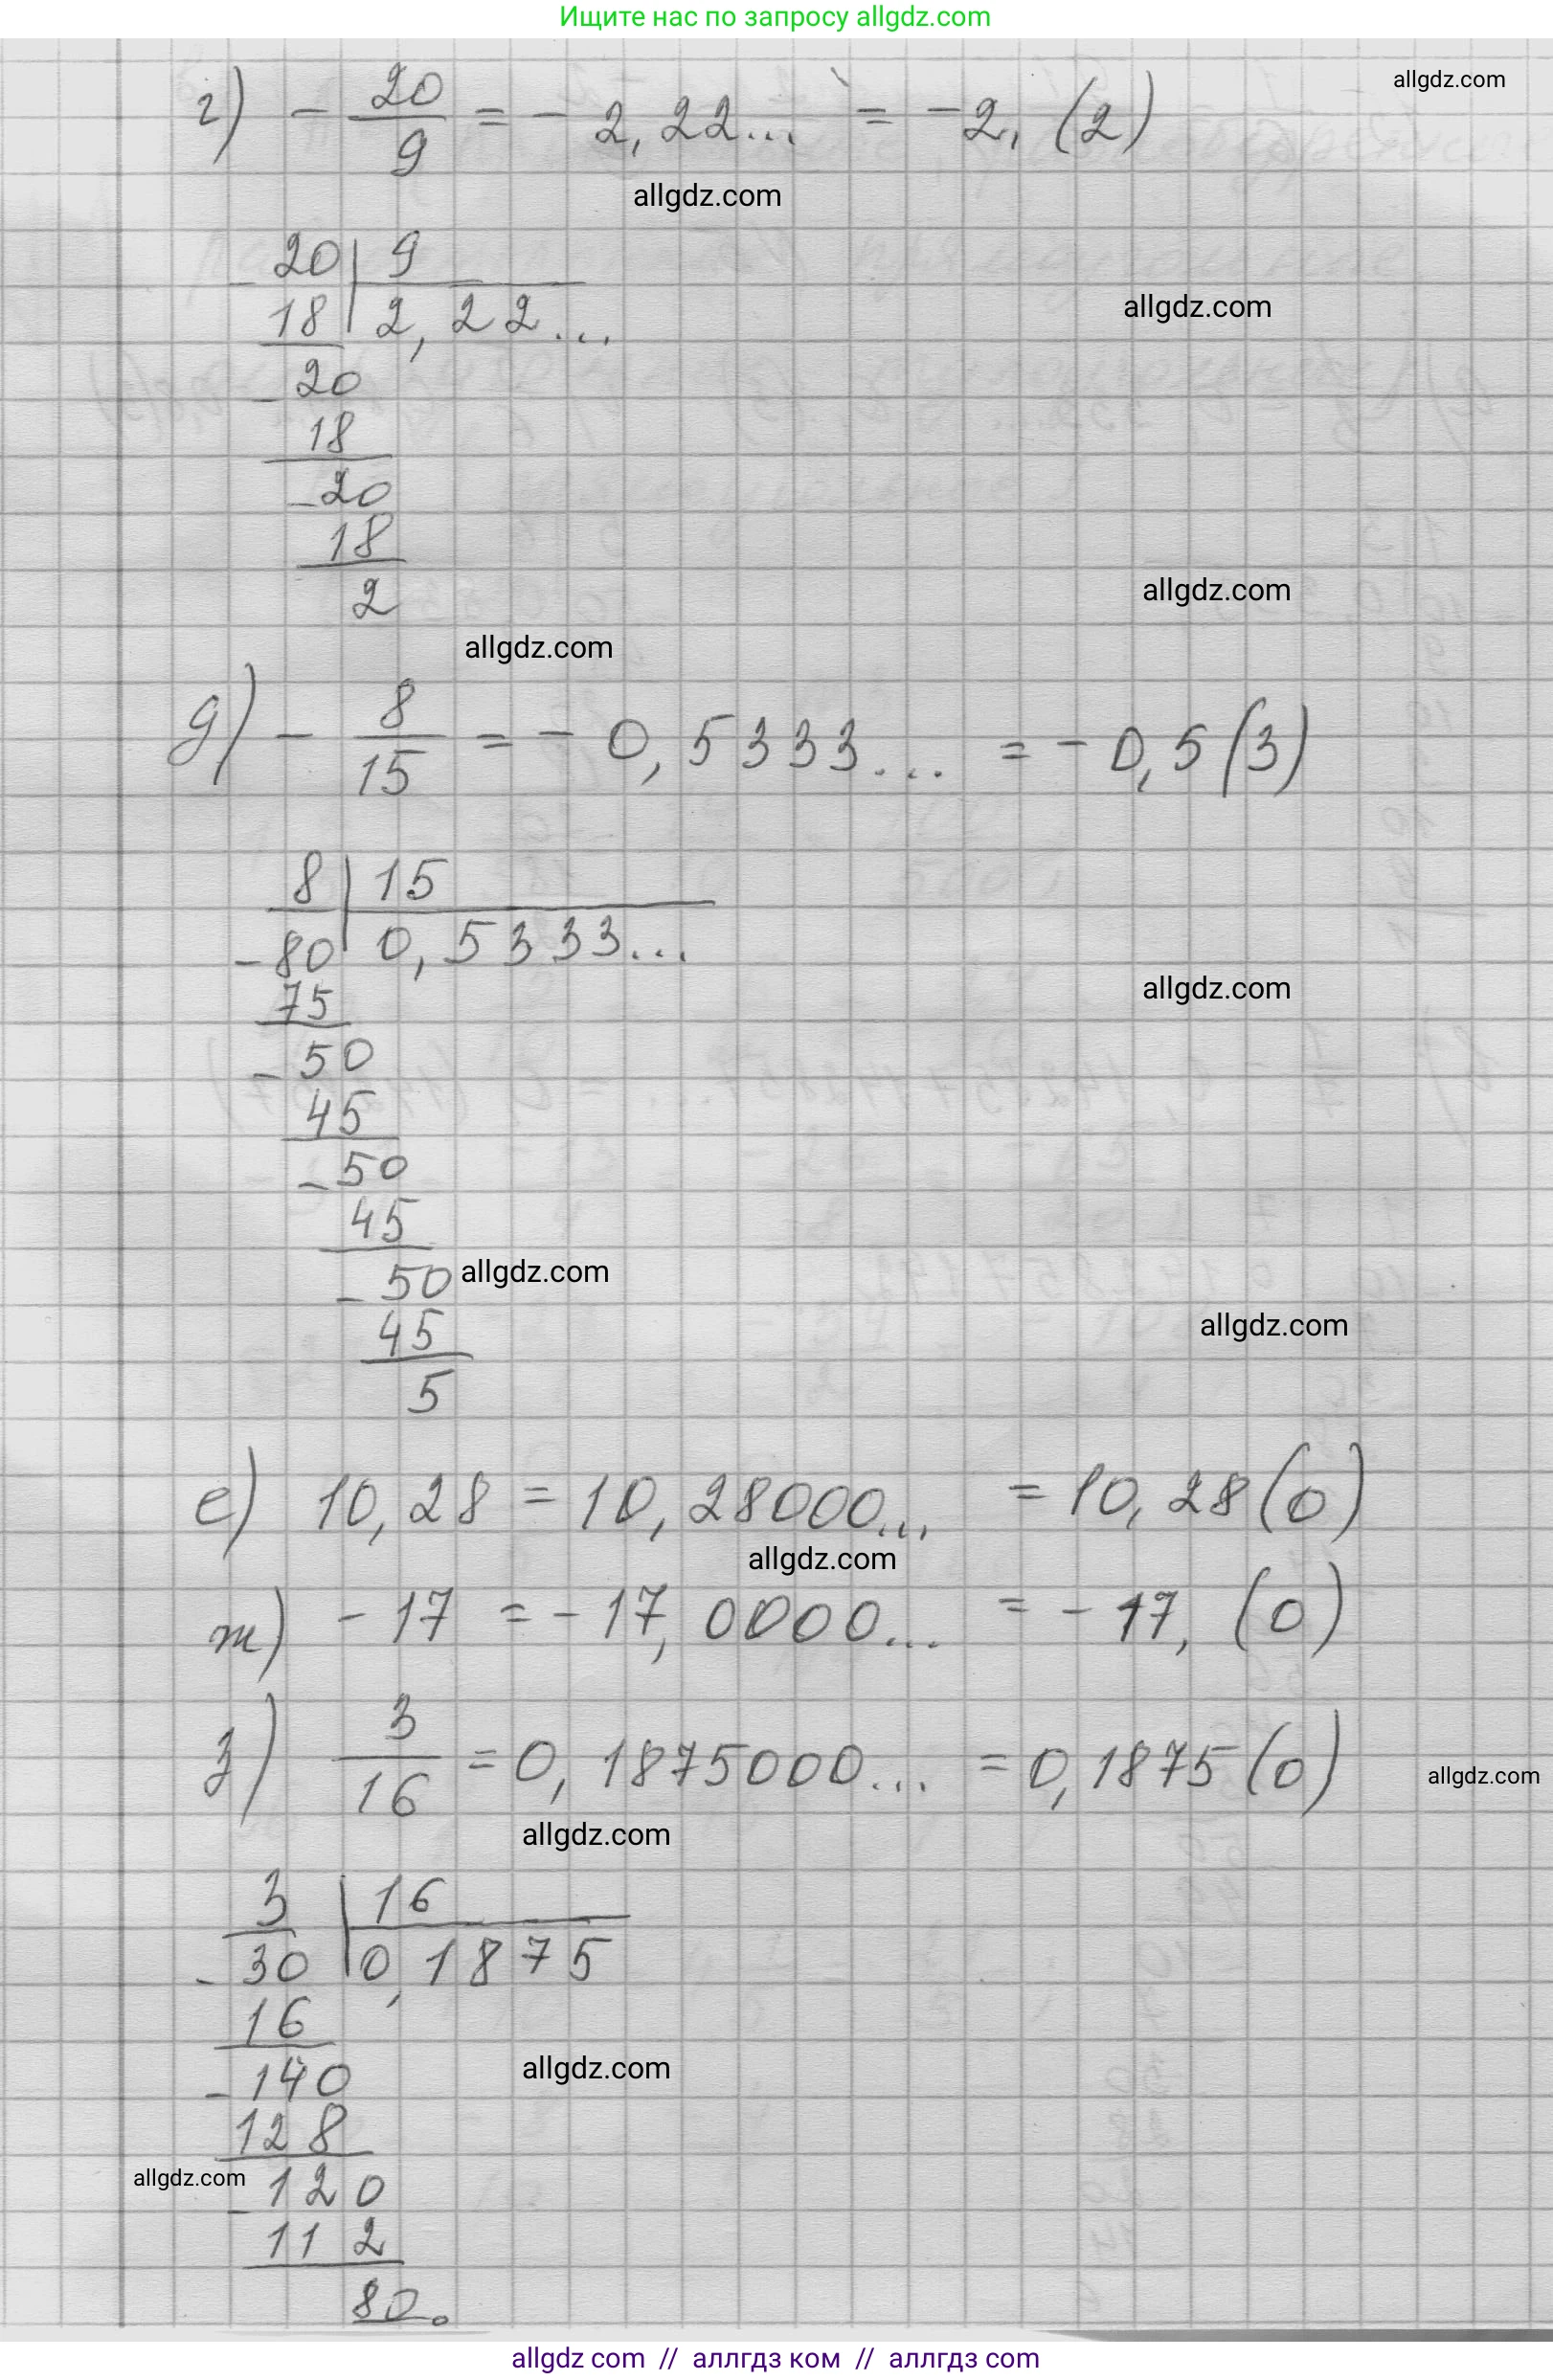 Ищите нас по запросу allgdz.com
allgdz.com
г) - 20/9 = - 2,22... = -2,(2)
allgdz.com
20 | 9
- 18 | 2,22...
allgdz.com
- 20
18
- 20
18
allgdz.com
2
allgdz.com
д) - 8/15 = - 0,5333... = - 0,5(3)
8 | 15
- 80 | 0,5333...
allgdz.com
75
- 50
45
- 50
45
- 50
allgdz.com
allgdz.com
45
5
е) 10,28 = 10,28000... = 10,28(0)
allgdz.com
ж) - 17 = - 17,0000... = - 17,(0)
з) 3/16 = 0,1875000... = 0,1875(0)
allgdz.com
allgdz.com
3 | 16
- 30 | 0,1875
16
allgdz.com
- 140
128
allgdz.com
- 120
112
80
allgdz com // аллгдз ком // аллгдз com